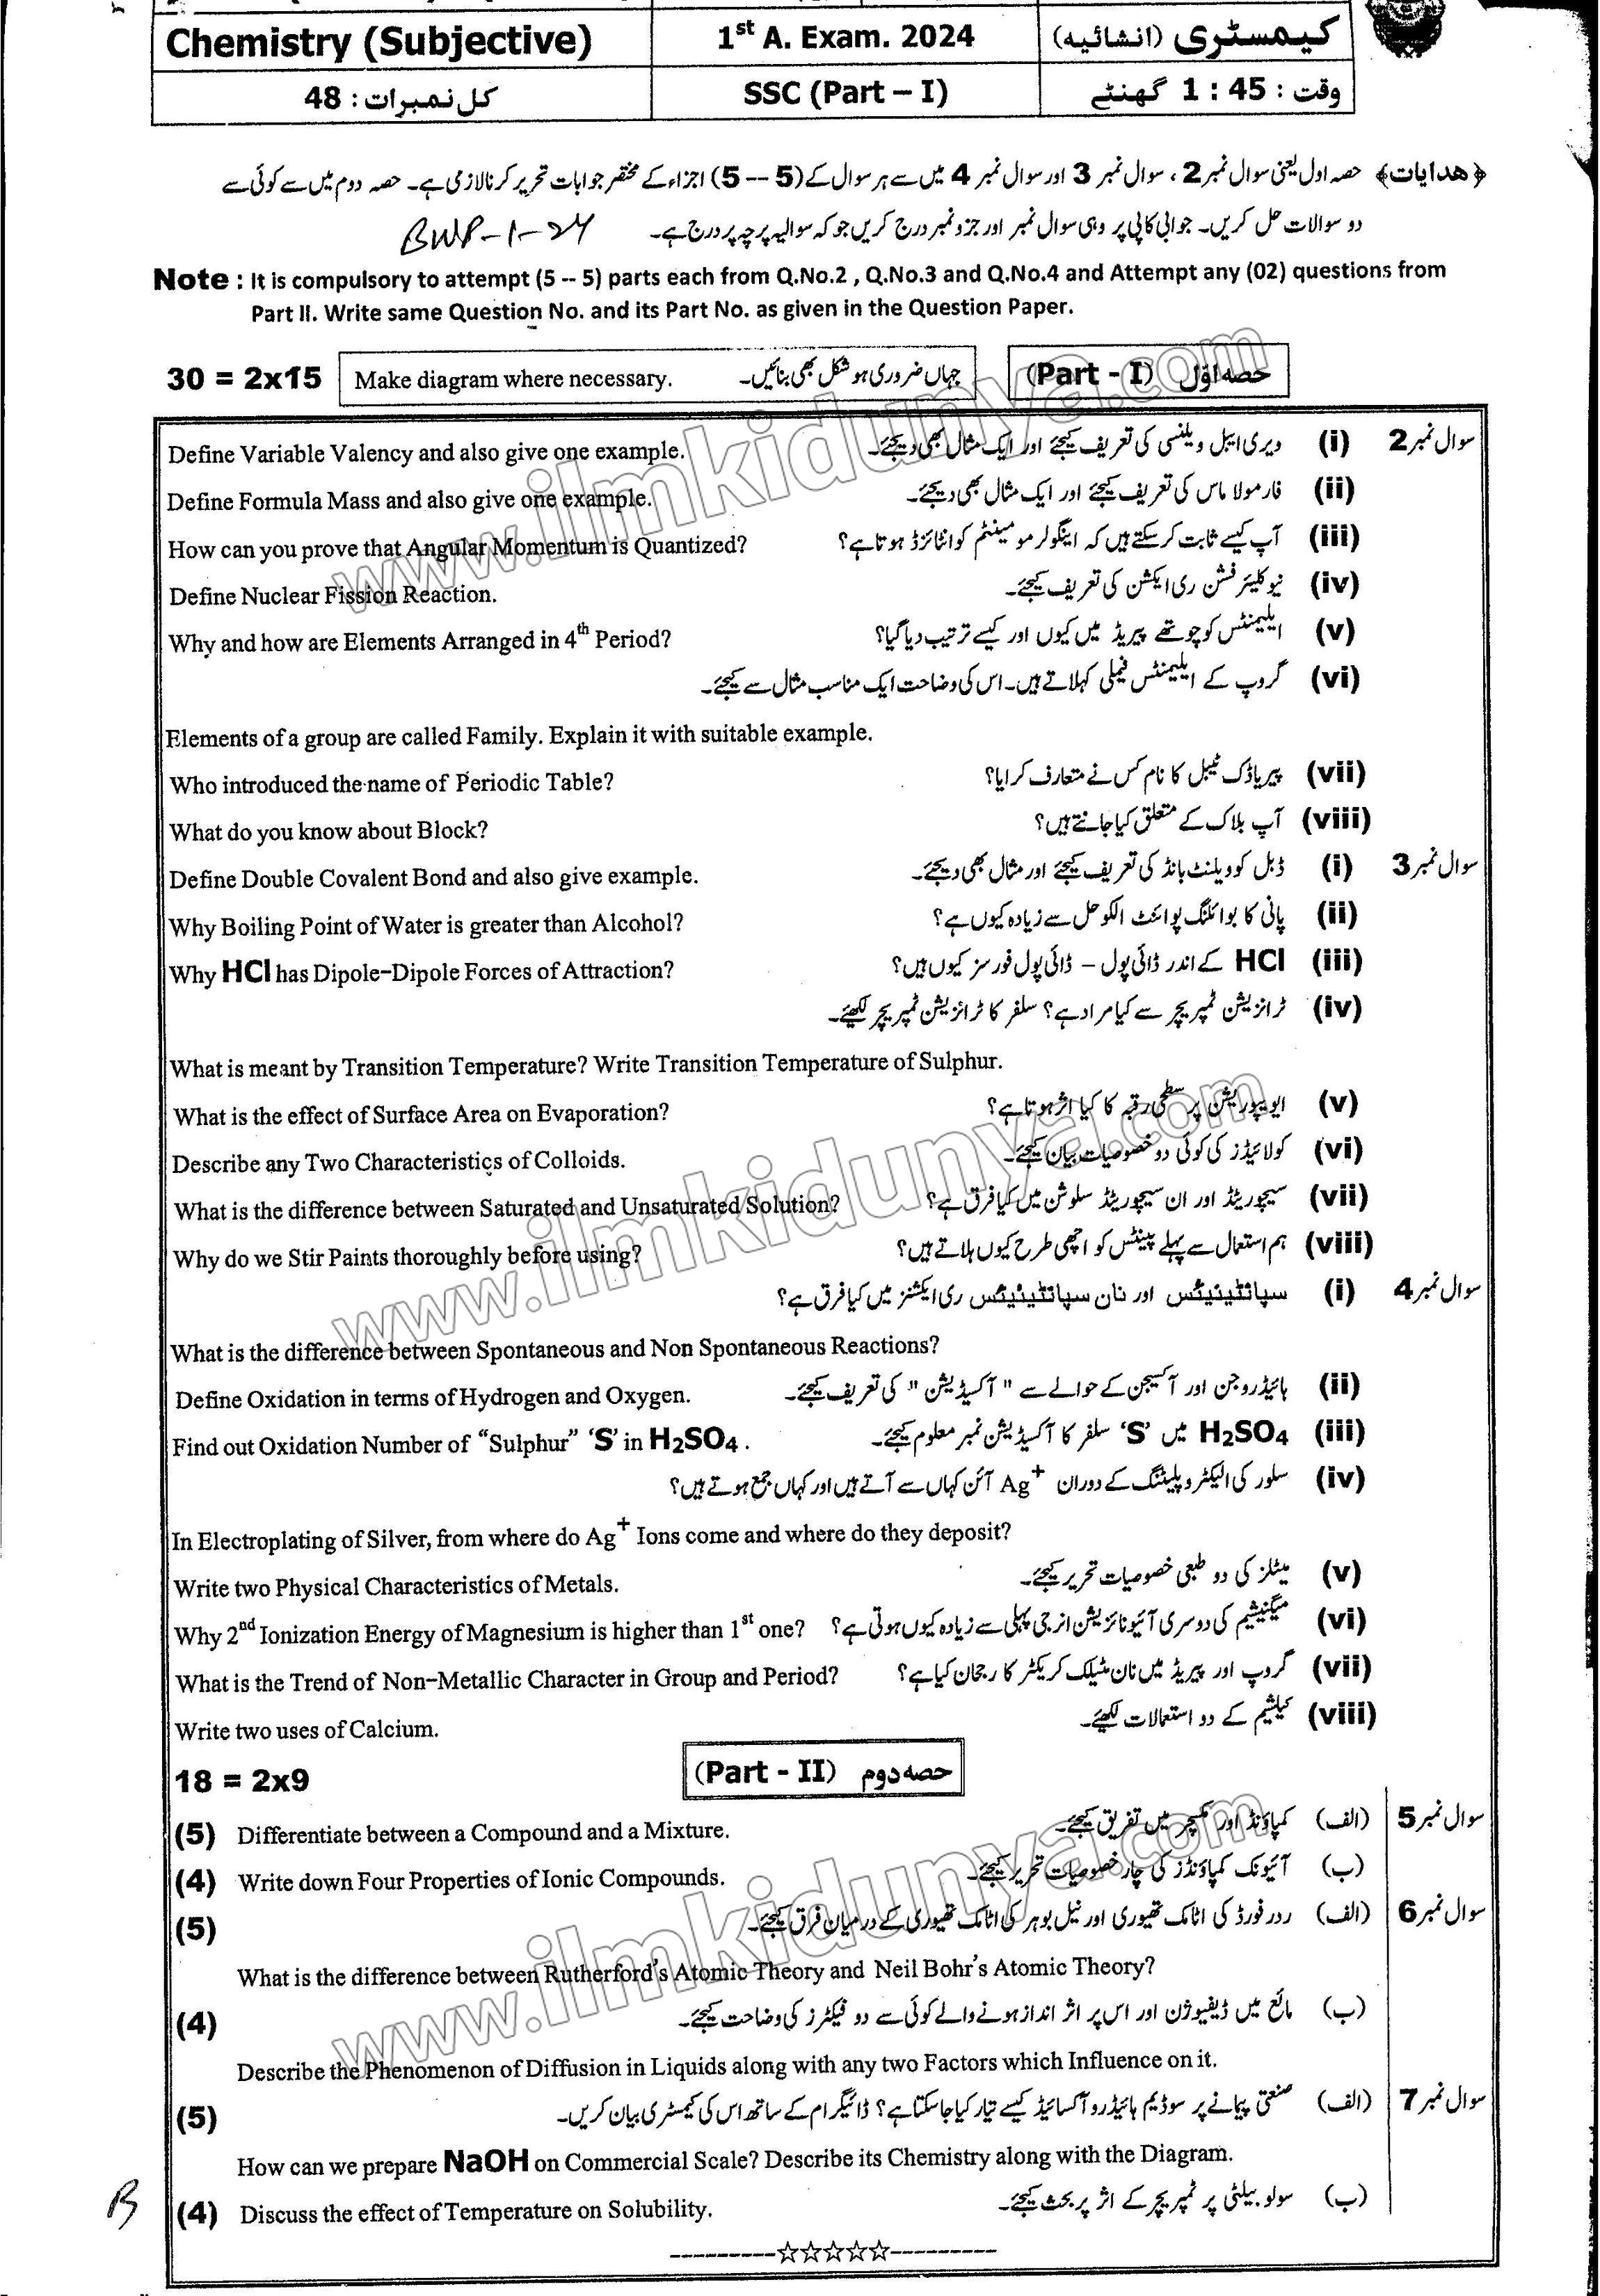 Chemistry (Subjective) 1st A. Exam. 2024 کیمسٹری (انشائیہ)
کل نمبرات : 48 SSC (Part – I) وقت : 1 : 45 گھنٹے
﴿ھدایات﴾ حصہ اول یعنی سوال نمبر 2 ، سوال نمبر 3 اور سوال نمبر 4 میں سے ہر سوال کے (5 -- 5) اجزاء کے مختصر جوابات تحریر کرنا لازمی ہے۔ حصہ دوم میں سے کوئی سے
دو سوالات حل کریں۔ جوابی کاپی پر وہی سوال نمبر اور جزو نمبر درج کریں جو کہ سوالیہ پرچہ پر درج ہے۔ BWP-1-24
Note : It is compulsory to attempt (5 -- 5) parts each from Q.No.2 , Q.No.3 and Q.No.4 and Attempt any (02) questions from
Part II. Write same Question No. and its Part No. as given in the Question Paper.
30 = 2x15 Make diagram where necessary. جہاں ضروری ہو شکل بھی بنائیں۔ (Part - I) حصہ اوّل
Define Variable Valency and also give one example. ویری ایبل ویلنسی کی تعریف کیجئے اور ایک مثال بھی دیجئے۔ (i) سوال نمبر 2
Define Formula Mass and also give one example. فارمولا ماس کی تعریف کیجئے اور ایک مثال بھی دیجئے۔ (ii)
How can you prove that Angular Momentum is Quantized? آپ کیسے ثابت کرسکتے ہیں کہ اینگولر مومینٹم کوانٹائزڈ ہوتا ہے؟ (iii)
Define Nuclear Fission Reaction. نیوکلیئر فشن ری ایکشن کی تعریف کیجئے۔ (iv)
Why and how are Elements Arranged in 4th Period? ایلیمنٹس کو چوتھے پیریڈ میں کیوں اور کیسے ترتیب دیا گیا؟ (v)
گروپ کے ایلیمنٹس فیملی کہلاتے ہیں۔ اس کی وضاحت ایک مناسب مثال سے کیجئے۔ (vi)
Elements of a group are called Family. Explain it with suitable example.
Who introduced the name of Periodic Table? پیریاڈک ٹیبل کا نام کس نے متعارف کرایا؟ (vii)
What do you know about Block? آپ بلاک کے متعلق کیا جانتے ہیں؟ (viii)
Define Double Covalent Bond and also give example. ڈبل کوویلنٹ بانڈ کی تعریف کیجئے اور مثال بھی دیجئے۔ (i) سوال نمبر 3
Why Boiling Point of Water is greater than Alcohol? پانی کا بوائلنگ پوائنٹ الکوحل سے زیادہ کیوں ہے؟ (ii)
Why HCl has Dipole-Dipole Forces of Attraction? HCl کے اندر ڈائی پول – ڈائی پول فورسز کیوں ہیں؟ (iii)
ٹرانزیشن ٹمپریچر سے کیا مراد ہے؟ سلفر کا ٹرانزیشن ٹمپریچر لکھئے۔ (iv)
What is meant by Transition Temperature? Write Transition Temperature of Sulphur.
What is the effect of Surface Area on Evaporation? ایوپوریشن پر سطحی رقبہ کا کیا اثر ہوتا ہے؟ (v)
Describe any Two Characteristics of Colloids. کولائیڈز کی کوئی دو خصوصیات بیان کیجئے۔ (vi)
What is the difference between Saturated and Unsaturated Solution? سیچوریٹڈ اور ان سیچوریٹڈ سلوشن میں کیا فرق ہے؟ (vii)
Why do we Stir Paints thoroughly before using? ہم استعمال سے پہلے پینٹس کو اچھی طرح کیوں ہلاتے ہیں؟ (viii)
سپانٹینیئس اور نان سپانٹینیئس ری ایکشنز میں کیا فرق ہے؟ (i) سوال نمبر 4
What is the difference between Spontaneous and Non Spontaneous Reactions?
Define Oxidation in terms of Hydrogen and Oxygen. ہائیڈروجن اور آکسیجن کے حوالے سے " آکسیڈیشن " کی تعریف کیجئے۔ (ii)
Find out Oxidation Number of “Sulphur” ‘S’ in H2SO4 . H2SO4 میں ‘S’ سلفر کا آکسیڈیشن نمبر معلوم کیجئے۔ (iii)
سلور کی الیکٹروپلیٹنگ کے دوران Ag+ آئن کہاں سے آتے ہیں اور کہاں جمع ہوتے ہیں؟ (iv)
In Electroplating of Silver, from where do Ag+ Ions come and where do they deposit?
Write two Physical Characteristics of Metals. میٹلز کی دو طبعی خصوصیات تحریر کیجئے۔ (v)
Why 2nd Ionization Energy of Magnesium is higher than 1st one? میگنیشیم کی دوسری آئیونائزیشن انرجی پہلی سے زیادہ کیوں ہوتی ہے؟ (vi)
What is the Trend of Non-Metallic Character in Group and Period? گروپ اور پیریڈ میں نان مٹیلک کریکٹر کا رجحان کیا ہے؟ (vii)
Write two uses of Calcium. کیلشیم کے دو استعمالات لکھئے۔ (viii)
18 = 2x9 (Part - II) حصہ دوم
(5) Differentiate between a Compound and a Mixture. کمپاؤنڈ اور مکسچر میں تفریق کیجئے۔ (الف) سوال نمبر 5
(4) Write down Four Properties of Ionic Compounds. آئیونک کمپاؤنڈز کی چار خصوصیات تحریر کیجئے۔ (ب)
(5) ردرفورڈ کی اٹامک تھیوری اور نیل بوہر کی اٹامک تھیوری کے درمیان فرق کیجئے۔ (الف) سوال نمبر 6
What is the difference between Rutherford's Atomic Theory and Neil Bohr's Atomic Theory?
(4) مائع میں ڈیفیوژن اور اس پر اثر انداز ہونے والے کوئی سے دو فیکٹرز کی وضاحت کیجئے۔ (ب)
Describe the Phenomenon of Diffusion in Liquids along with any two Factors which Influence on it.
(5) صنعتی پیمانے پر سوڈیم ہائیڈروآکسائیڈ کیسے تیار کیا جاسکتا ہے؟ ڈائیگرام کے ساتھ اس کی کیمسٹری بیان کریں۔ (الف) سوال نمبر 7
How can we prepare NaOH on Commercial Scale? Describe its Chemistry along with the Diagram.
(4) Discuss the effect of Temperature on Solubility. سولوبیلٹی پر ٹمپریچر کے اثر پر بحث کیجئے۔ (ب)
B
www.ilmkidunya.com
www.ilmkidunya.com
www.ilmkidunya.com